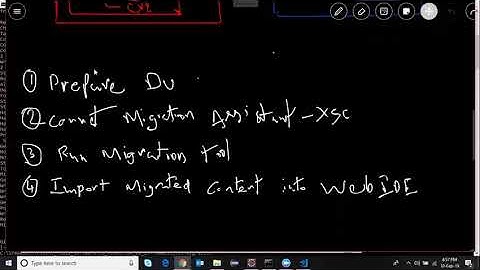 ① Prepare Du
② Connet Migration Assistant - XSC
③ Run Migration Tool
④ Import Migrated Content into Web IDE
Type here to search
4:57 PM